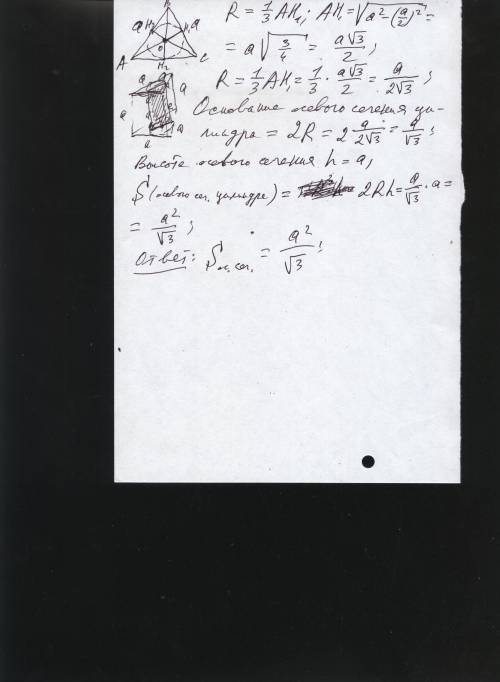 R = 1/3 AH₁; AH₁ = √(a² - (a/2)²) =
= a√(3/4) = a√3/2;
R = 1/3 AH₁ = 1/3 · a√3/2 = a/2√3;
Основание осевого сечения ци-
линдра = 2R = 2 a/2√3 = a/√3;
Высота осевого сечения h = a;
S (осевого сеч. цилиндра) = 2Rh = a/√3 · a =
= a²/√3;
Ответ: S ос. сеч. = a²/√3;
A
C
H₂
O
a
a
a
a
a
a